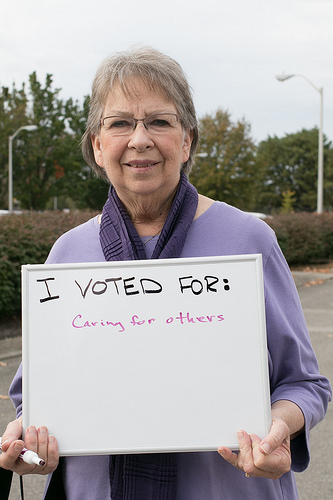 I VOTED FOR:
Caring for others